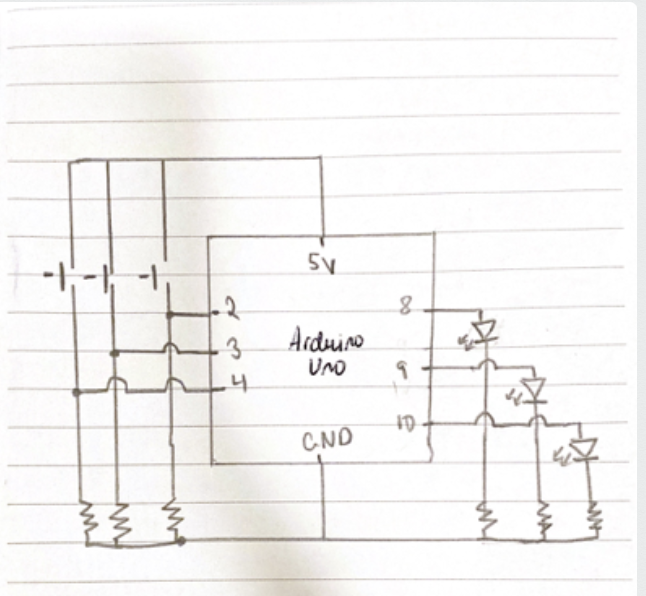 5V
2
8
3
Arduino
Uno
9
4
10
GND